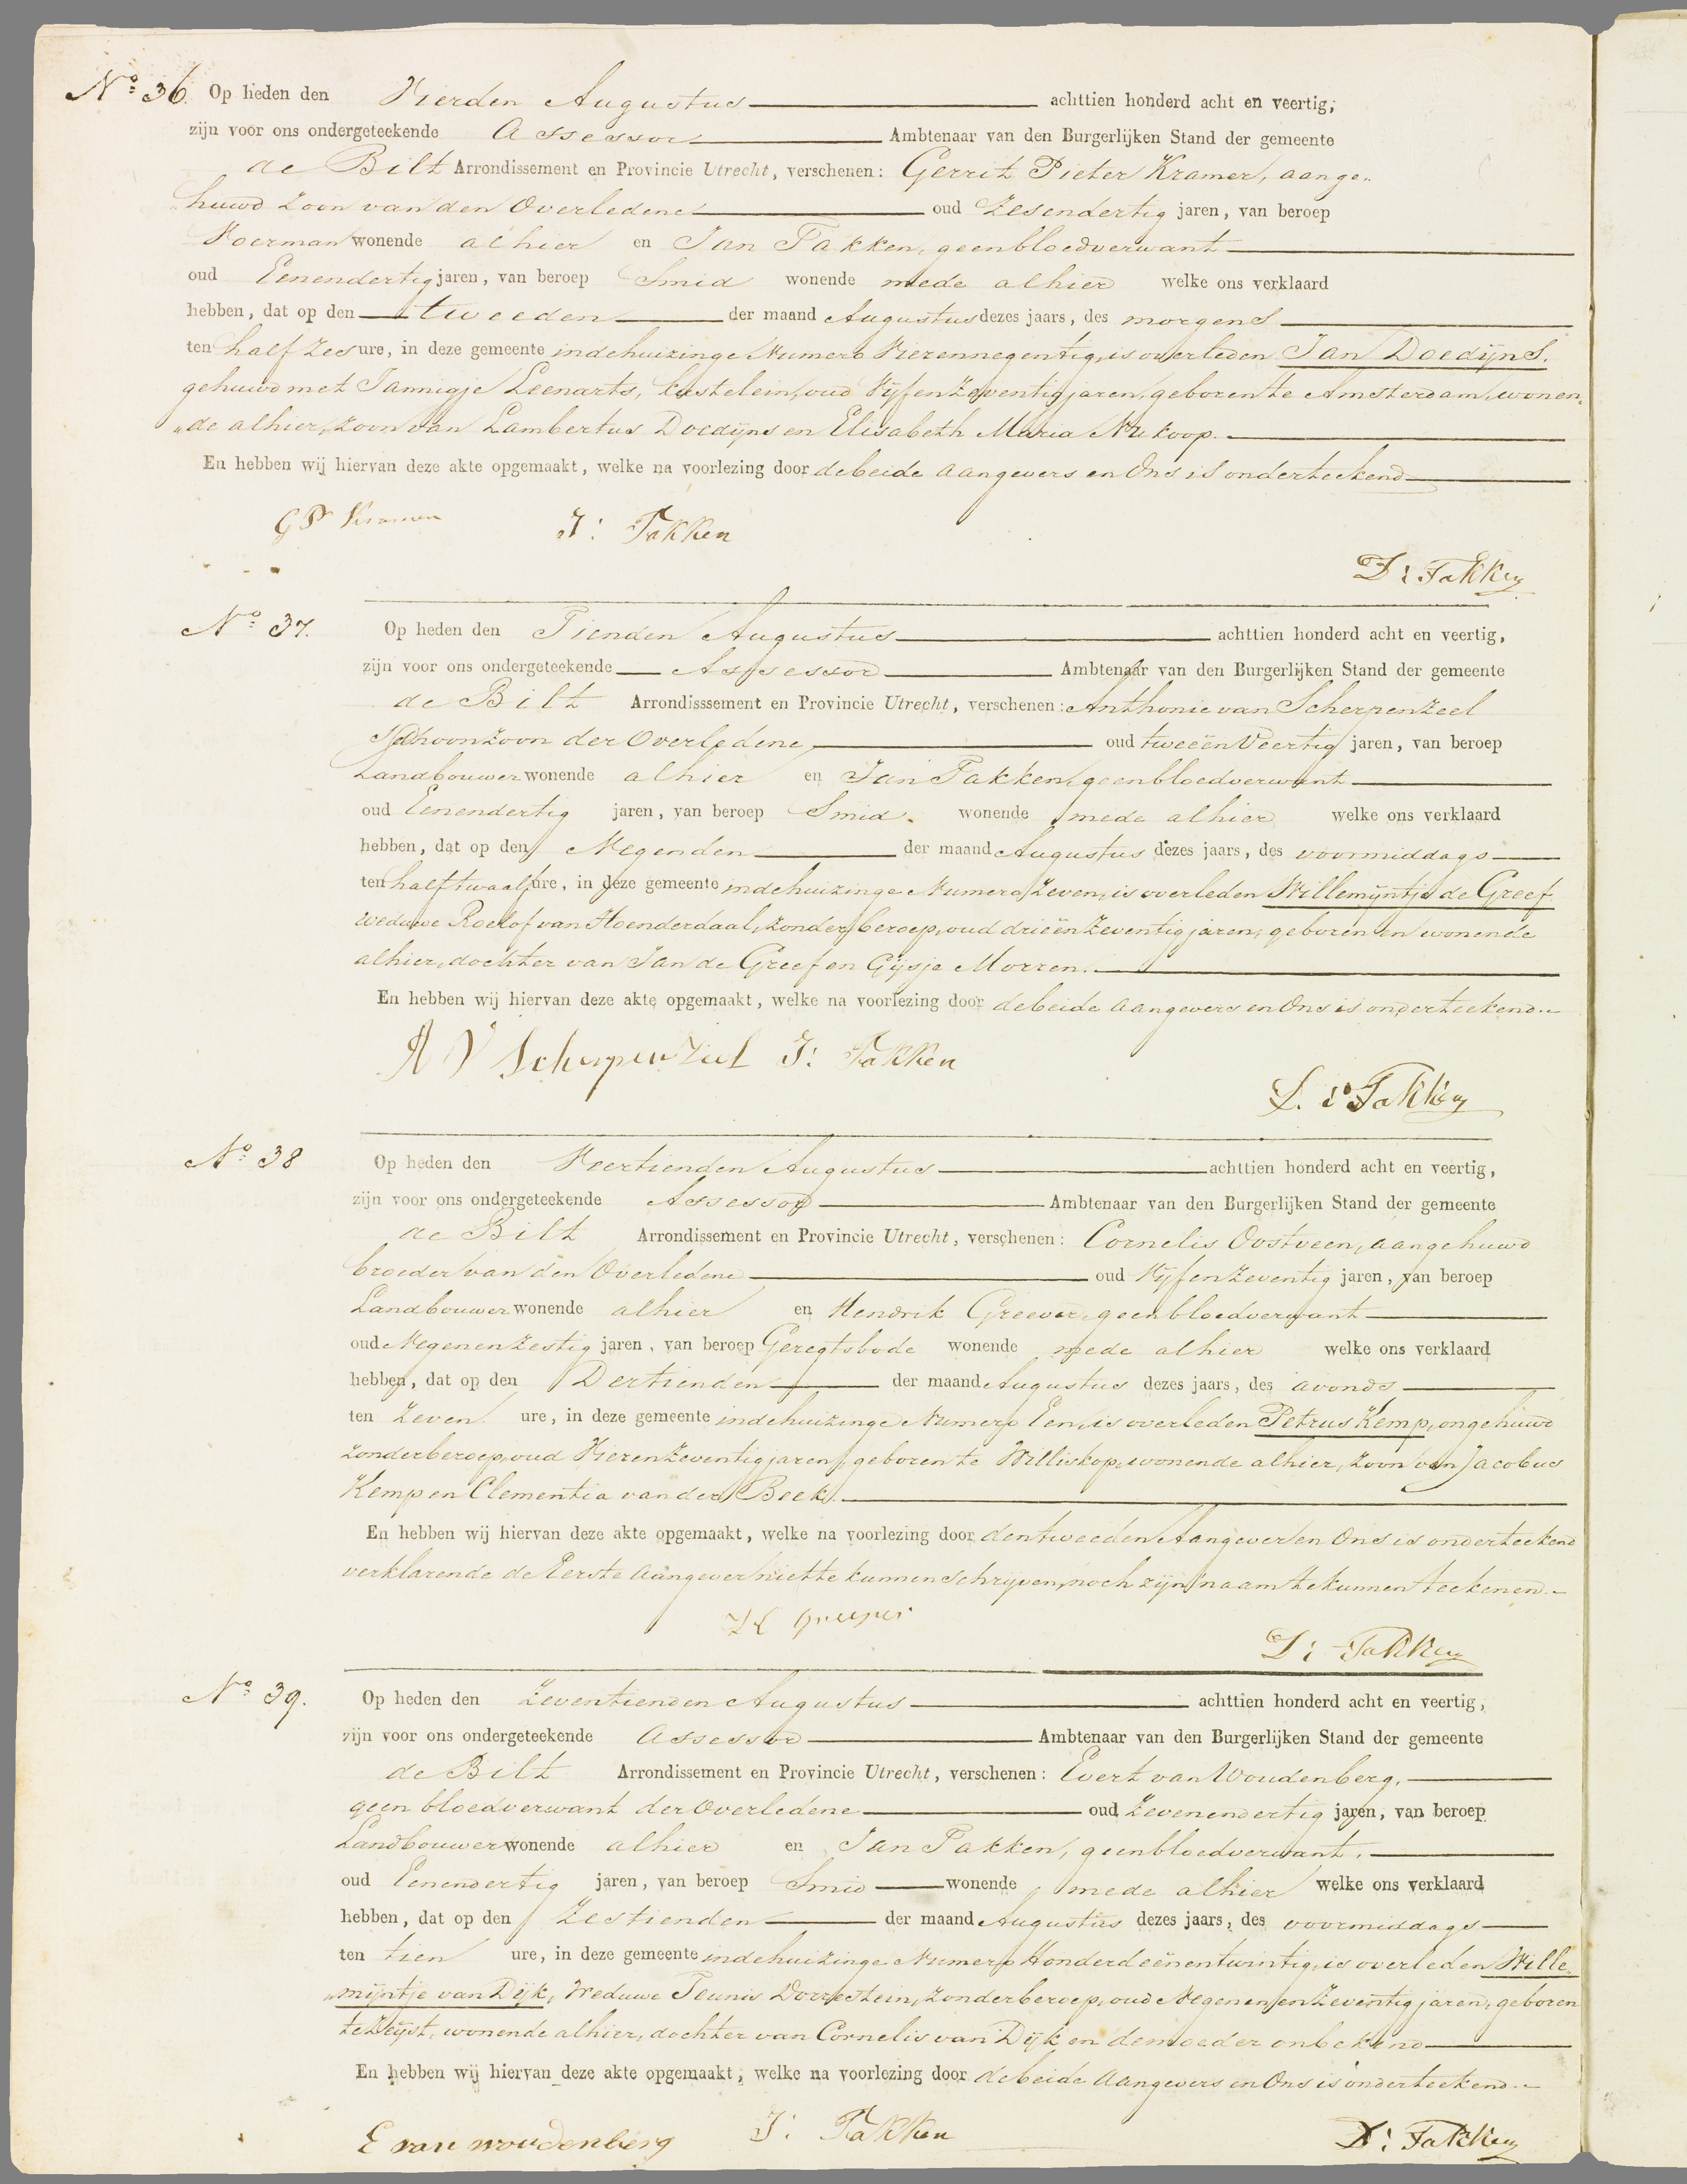 No 36. Op heden den Vierden Augustus achttien honderd acht en veertig,
zijn voor ons ondergeteekende Assessor Ambtenaar van den Burgerlijken Stand der gemeente
de Bilt Arrondissement en Provincie Utrecht, verschenen: Gerrit Pieter Kramer, aange„
„huwd Zoon van den Overledene oud Zesendertig jaren, van beroep
Voerman wonende alhier en Jan Takken, geen bloedverwant
oud Eenendertig jaren, van beroep Smid wonende mede alhier welke ons verklaard
hebben, dat op den tweeden der maand Augustus dezes jaars, des morgens
ten half Zes ure, in deze gemeente in de huizinge Numero Vierennegentig, is overleden Jan Doedijns.
gehuwd met Jannigje Leenarts, kastelein, oud Vijfenzeventig jaren, geboren te Amsterdam, wonen„
„de alhier, zoon van Lambertus Doedijns en Elisabeth Maria Nukoop.
En hebben wij hiervan deze akte opgemaakt, welke na voorlezing door de beide aangevers en Ons is onderteekend
G P Kramer J: Takken
D: Takken
No 37. Op heden den Tienden Augustus achttien honderd acht en veertig,
zijn voor ons ondergeteekende Assessor Ambtenaar van den Burgerlijken Stand der gemeente
de Bilt Arrondisssement en Provincie Utrecht, verschenen: Anthonie van Scherpenzeel
Schoonzoon der Overledene, oud tweeënveertig jaren, van beroep
Landbouwer wonende alhier en Jan Takken, geen bloedverwant
oud Eenendertig jaren, van beroep Smid. wonende mede alhier welke ons verklaard
hebben, dat op den Negenden der maand Augustus dezes jaars, des voormiddags
ten half twaalf ure, in deze gemeente in de huizinge Numero Zeven, is overleden Willemijntje de Greef
weduwe Roelof van Hoenderdaal, zonder beroep, oud drieënzeventig jaren, geboren en wonende
alhier, dochter van Jan de Greef en Gijsje Morren.
En hebben wij hiervan deze akte opgemaakt, welke na voorlezing door de beide aangevers en Ons is onderteekend.
A V Scherpenziel J: Takken
D: Takken
No 38 Op heden den Veertienden Augustus achttien honderd acht en veertig,
zijn voor ons ondergeteekende Assessor Ambtenaar van den Burgerlijken Stand der gemeente
de Bilt Arrondissement en Provincie Utrecht, verschenen: Cornelis Oostveen, aangehuwd
broeder van den Overledene oud Vijfenzeventig jaren, van beroep
Landbouwer wonende alhier en Hendrik Greever, geen bloedverwant
oud Negenenzestig jaren, van beroep Geregtsbode wonende mede alhier welke ons verklaard
hebben, dat op den Dertienden der maand Augustus dezes jaars, des avonds
ten Zeven ure, in deze gemeente in de huizinge Numero Een, is overleden Petrus Kemp, ongehuwd
zonder beroep, oud Vierenzeventig jaren, geboren te Williskop, wonende alhier, zoon van Jacobus
Kemp en Clementia van der Beek.
En hebben wij hiervan deze akte opgemaakt, welke na voorlezing door den tweeden Aangever en Ons is onderteekend
verklarende de Eerste aangever niet te kunnen schrijven, noch zijn naam te kunnen teekenen.
H Greever
D: Takken
No 39. Op heden den Zeventienden Augustus achttien honderd acht en veertig,
zijn voor ons ondergeteekende Assessor Ambtenaar van den Burgerlijken Stand der gemeente
de Bilt Arrondissement en Provincie Utrecht, verschenen: Evert van Woudenberg,
geen bloedverwant der Overledene oud Zevenendertig jaren, van beroep
Landbouwer wonende alhier en Jan Takken, geen bloedverwant,
oud Eenendertig jaren, van beroep Smid wonende mede alhier welke ons verklaard
hebben, dat op den Zestienden der maand Augustus dezes jaars, des voormiddags
ten tien ure, in deze gemeente in de huizinge Numero Honderdeënentwintig, is overleden Wille„
„mijntje van Dijk, Weduwe Teunis Dorrestein, zonder beroep, oud Negenenenzeventig jaren, geboren
te Zeijst, wonende alhier, dochter van Cornelis van Dijk en de moeder onbekend
En hebben wij hiervan deze akte opgemaakt, welke na voorlezing door de beide aangevers en Ons is onderteekend.
E van woudenberg J: Takken D: Takken